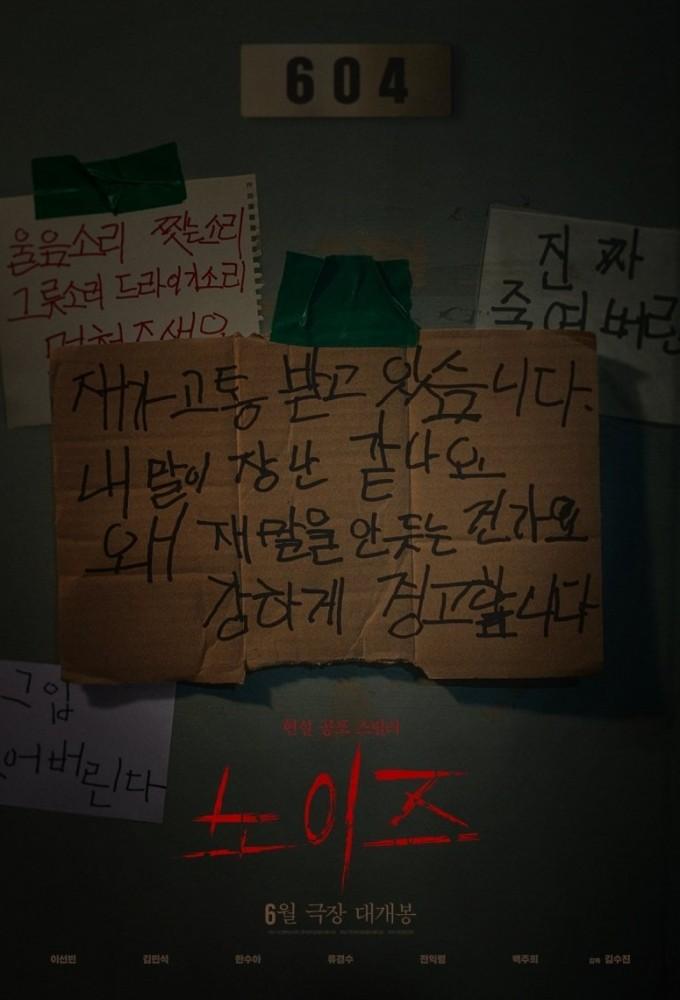 604
울음소리 찢는소리
그릇소리 드라이기소리
멈춰주세요
진짜
죽여버린
재가 고통 받고 있습니다.
내 말이 장난 같나요
왜 재 말을 안 듯는 건가요
강하게 경고합니다
그입
어버린다
현실 공포 스릴러
노이즈
6월 극장 대개봉
이선빈 김민석 한수아 류경수 전익령 백주희 감독 김수진